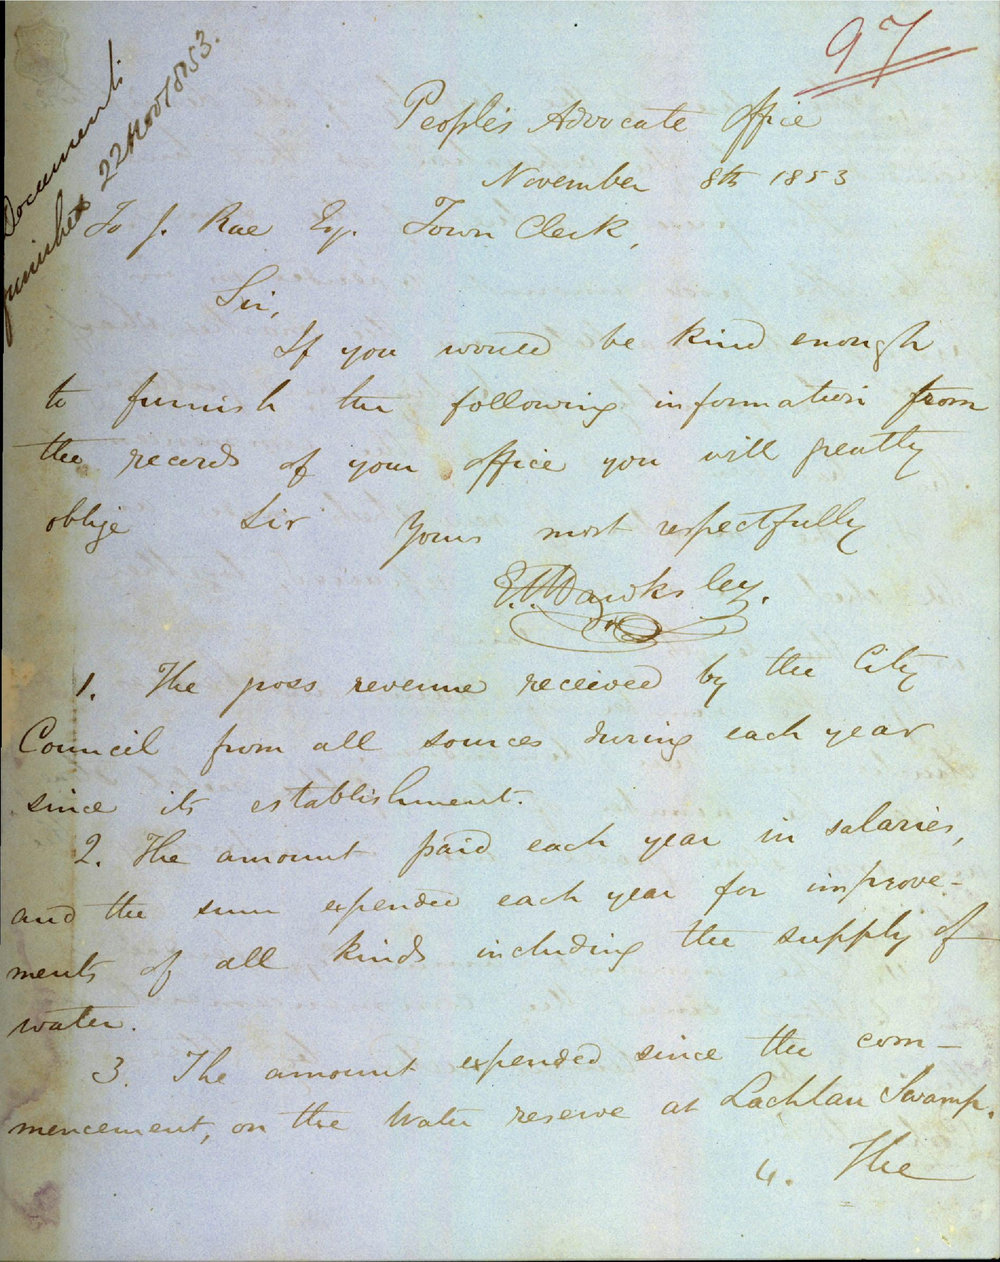 97
Documents
furnished 22 Nov 1853.
People's Advocate Office
November 8th 1853
To J. Rae Esq. Town Clerk,
Sir,
If you would be kind enough
to furnish the following information from
the records of your office you will greatly
oblige Sir Yours most respectfully
E. J. Hawksley.
1. The gross revenue received by the City
Council from all sources during each year
since its establishment.
2. The amount paid each year in salaries,
and the sum expended each year for improve-
ments of all kinds including the supply of
water.
3. The amount expended since the com-
mencement, on the Water reserve at Lachlan Swamp.
4. The